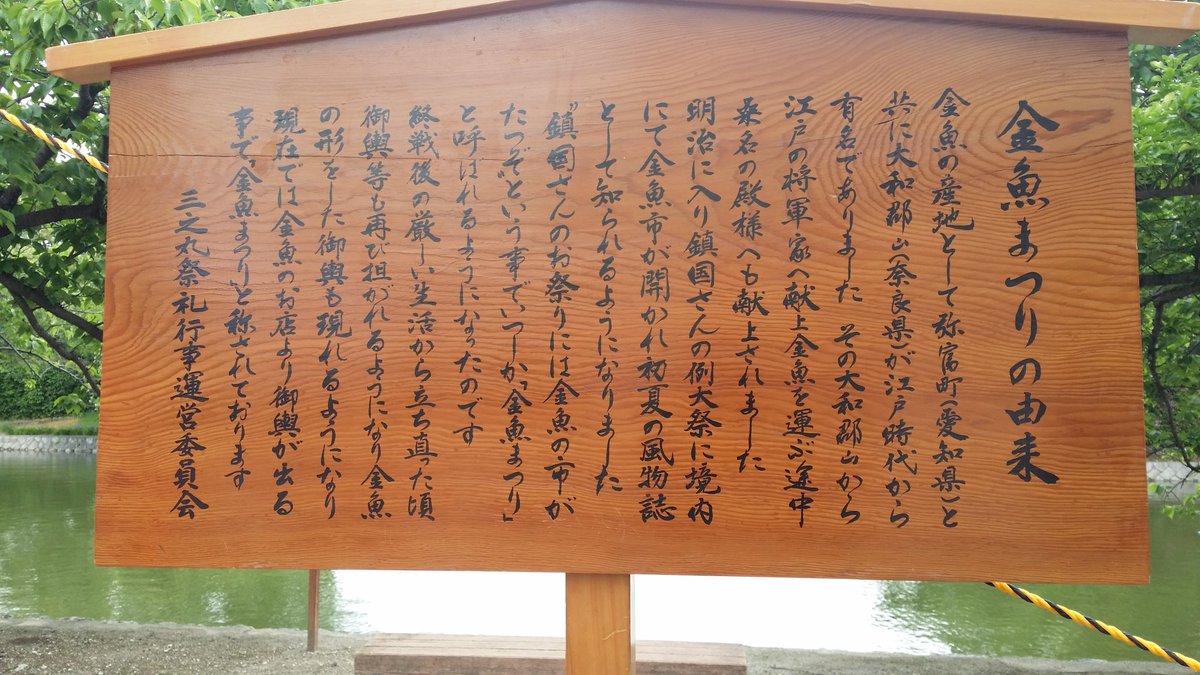 金魚まつりの由来
金魚の産地として弥富町(愛知県)と
共に大和郡山(奈良県)が江戸時代から
有名でありました その大和郡山から
江戸の将軍家へ献上金魚を運ぶ途中
桑名の殿様へも献上されました
明治に入り鎮国さんの例大祭に境内
にて金魚市が開かれ初夏の風物誌
として知られるようになりました
"鎮国さんのお祭りには金魚の市が
たつぞ"という事でいつしか「金魚まつり」
と呼ばれるようになったのです
終戦後の厳しい生活から立ち直った頃
御輿等も再び担がれるようになり金魚
の形をした御輿も現れるようになり
現在では金魚のお店より御輿が出る
事で「金魚まつり」と称されております
三之丸祭礼行事運営委員会